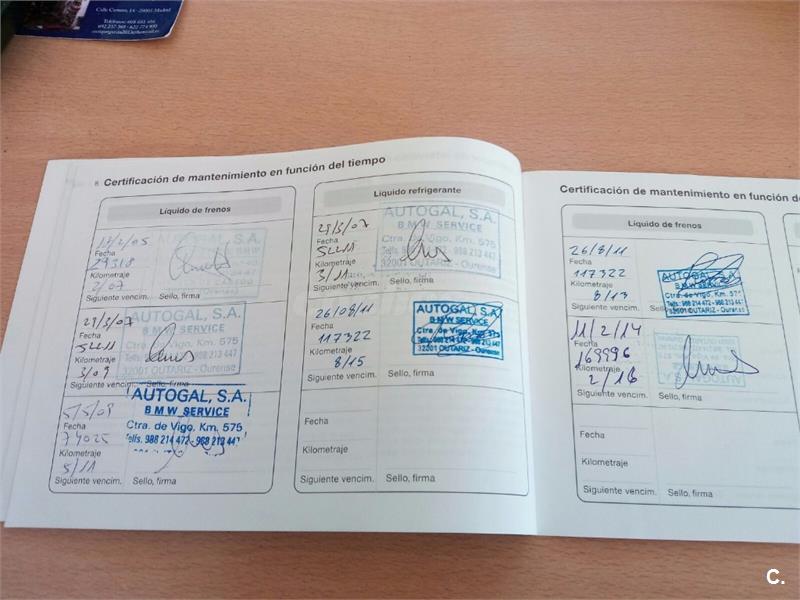 Calle Comero, 14 - 28005 Madrid
8 Certificación de mantenimiento en función del tiempo
Líquido de frenos
13/2/05
Fecha
29318
Kilometraje
2/07
Siguiente vencim.
Sello, firma
AUTOGAL, S.A.
29/3/07
Fecha
52211
Kilometraje
3/09
Siguiente vencim.
Sello, firma
AUTOGAL, S.A.
BMW SERVICE
Ctra. de Vigo, Km. 575
32001 OUTARIZ - Ourense
5/5/09
Fecha
74025
Kilometraje
5/11
Siguiente vencim.
Sello, firma
AUTOGAL, S.A.
BMW SERVICE
Ctra. de Vigo, Km. 575
Telfs. 988 214 472 - 988 213 447
Líquido refrigerante
29/3/07
Fecha
52211
Kilometraje
3/11
Siguiente vencim.
Sello, firma
AUTOGAL, S.A.
BMW SERVICE
Ctra. de Vigo, Km. 575
Telfs. 988 214 472 - 988 213 447
32001 OUTARIZ - Ourense
26/08/11
Fecha
117322
Kilometraje
8/15
Siguiente vencim.
Sello, firma
AUTOGAL, S.A.
BMW SERVICE
Ctra. de Vigo, Km. 575
32001 OUTARIZ - Ourense
Fecha
Kilometraje
Siguiente vencim.
Sello, firma
Certificación de mantenimiento en función d
Líquido de frenos
26/8/11
Fecha
117322
Kilometraje
8/13
Siguiente vencim.
Sello, firma
AUTOGAL
Ctra. de Vigo, Km. 575
OUTARIZ - Ourense
11/2/14
Fecha
169996
Kilometraje
2/16
Siguiente vencim.
Sello, firma
AUTOGAL
Fecha
Kilometraje
Siguiente vencim.
Sello, firma
C.